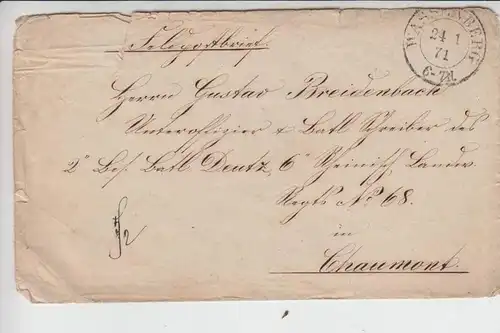 Feldpostbrief.
WASSENBERG
24 1
71
6-7N.
Herrn Gustav Breidenbach
Unteroffizier & Batl Schreiber des
2° Bes. Batl Deutz, 6° Rheinisch. Landw.
Regts No 68.
in
Chaumont.